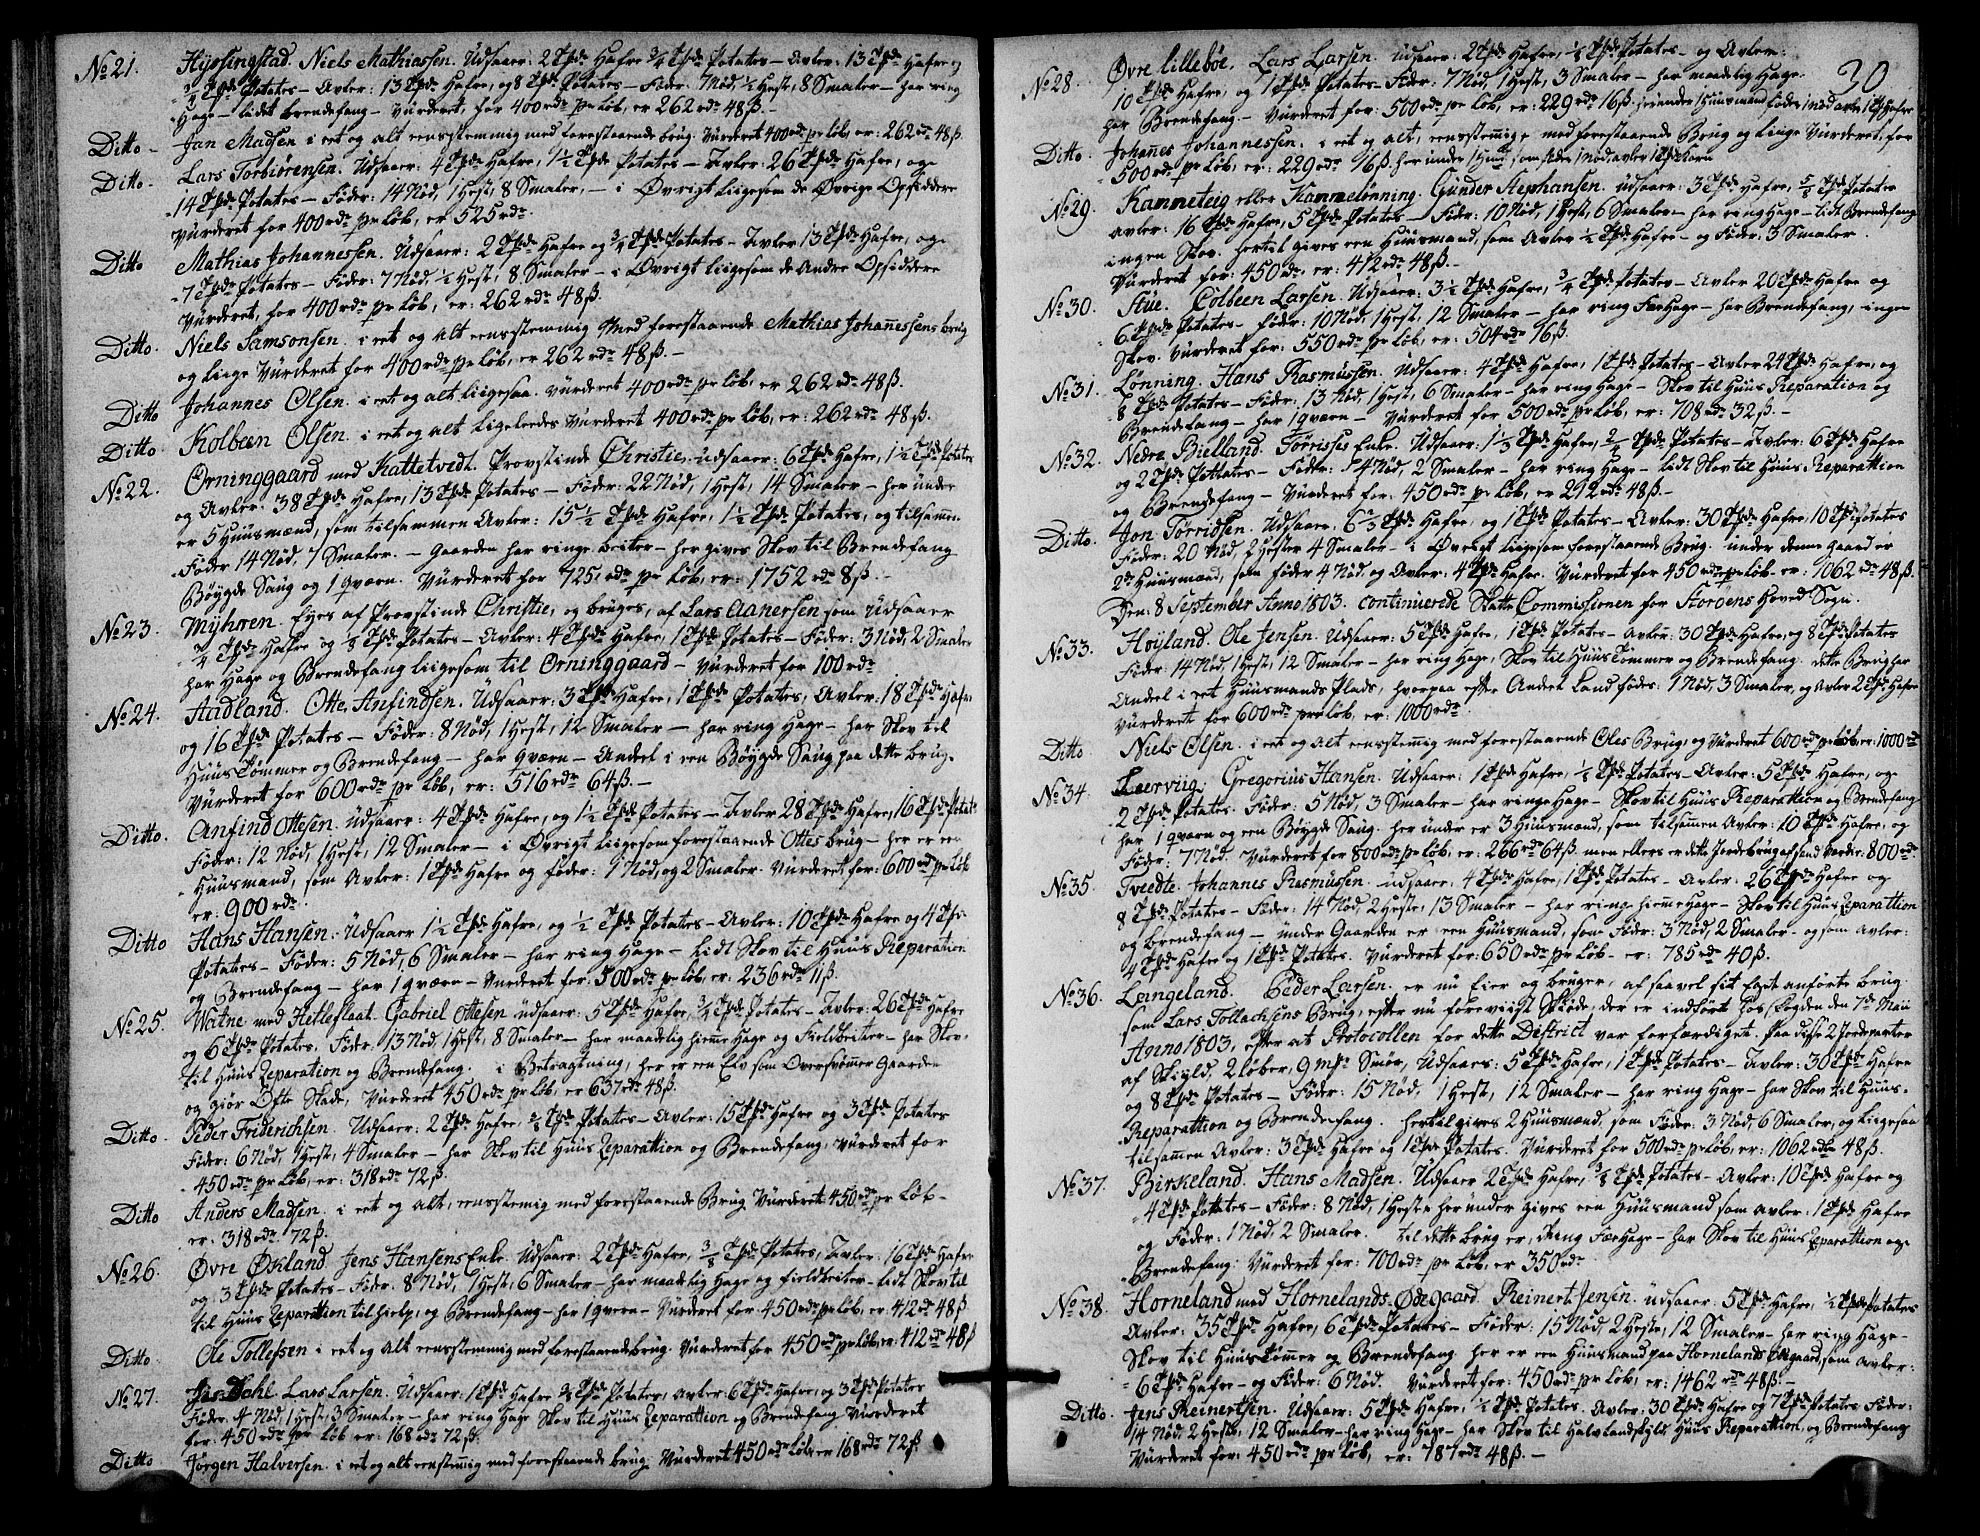 No 21. Hÿstingstad. Niels Mathiassen. Udsaaer: 2 Tpde Hafre 3/4 Tpde Potates – Avler: 13 Tpde Hafre og
Tpde Potates – Avler: 13 Tpde Hafre, og 8 Tpde Potates – Føder: 7 Nød, 1/2 Hest, 8 Smaler – har ring
Hage – lidet brendefang – Vurderet, for 400 rdr pr Løb, er 262 rdr 48 ß. –
Ditto – Jan Madsen i eet og alt eensstemmig med forestaaende brug. Vurderet 400 rdr pr Løb, er: 262 rdr 48 ß.
Ditto. Lars Torbiørensen. Udsaaer: 4 Tpde Hafre, 1 1/2 Tpde Potates – Avler: 26 Tpde Hafre, og
14 Tpde Potates – Føder: 14 Nød, 1 Hest, 8 Smaler, – i Øvrigt liigesom de Øvrige Opsiddere
Vurderet for 400 rdr pr Løb, er 525 rdr.
Ditto Mathias Johannessen. Udsaaer: 2 Tpde Hafre og 3/4 Tpde Potates – Avler 13 Tpde Hafre, og
7 Tpde Potates – Føder: 7 Nød, 1/2 Hest, 8 Smaler – i Øvrigt liigesom de Andre Opsiddere
Vurderet, for 400 rdr pr Løb, er: 262 rdr 48 ß.
Ditto. Niels Samsonsen. i eet og alt eensstemmig Med forestaaende Mathias Johannessens brug
og Liige Vurderet for 400 rdr pr Løb, er 262 rdr 48 ß. –
Ditto Johannes Olsen. i eet og alt liigesaa. Vurderet 400 rdr pr Løb, er 262 rdr 48 ß.
Ditto. Kolbeen Olsen. i eet og alt Ligeledes Vurderet 400 rdr pr Løb, er: 262 rdr 48 ß.
No 22. Orninggaard med Kattetvedt. Provstinde Christie. udsaaer: 6 Tpde Hafre, 1 1/2 Tpde Potates
og Avler: 38 Tpde Hafre, 13 Tpde Potates – Føder: 22 Nød, 1 Hest, 14 Smaler – her under
er 5 Huusmænd, som tilsammen Avler: 15 1/2 Tpde Hafre, 1 1/2 Tpde Potates, og tilsammen
Føder 14 Nød, 7 Smaler. – Gaarden har ringe beiter – her gives Skov til Brendefang
Bøygde Saug og 1 qværn. Vurderet for 725 rdr pr Løb, er: 1752 rdr 8 ß. –
No 23. Mÿhren. Eÿes af Provstinde Christie, og bruges, af Lars Aanersen som Udsaaer
3/4 Tpde Hafre og 1/8 Tpde Potates – Avler: 4 Tpde Hafre, 1 Tpde Potates – Føder: 3 Nød, 2 Smaler
har Hage og Brendefang liigesom til Orninggaard – Vurderet for 100 rdr
No 24. Aadland. Otte Anfindsen. Udsaaer: 3 Tpde Hafre, 1 Tpde Potates, Avler: 18 Tpde Hafre
og 16 Tpde Potates – Føder: 8 Nød, 1 Hest, 12 Smaler – har ring Hage – har Skov til
Huus Tømmer og Brendefang – har qværn – Andeel i een Bøygde Saug paa dette brug.
Vurderet for 600 rdr pr Løb, er: 516 rdr 64 ß. –
Ditto. Anfind Ottesen. udsaaer: 4 Tpde Hafre, og 1 1/2 Tpde Potates – Avler 28 Tpde Hafre, 16 Tpde Potates
Føder: 12 Nød, 1 Hest, 12 Smaler – i Øvrigt liigesom forestaaende Ottes brug – her er een
Huusmand, som Avler: 1 Tpde Hafre og føder: 1 Nød, og 2 Smaler. Vurderet for: 600 rdr pr Løb
er: 900 rdr.
Ditto Hans Hansen: Udsaaer 1 1/2 Tpde Hafre, og 1/2 Tpde Potates – Avler: 10 Tpde Hafre og 4 Tpde
Potates – Føder: 5 Nød, 6 Smaler – har ring Hage – Lidt Skov til Huus Reparation
og Brendefang – har 1 qværn – Vurderet for: 500 rdr pr Løb, er: 236 rdr 11 ß.
No 25. Watne med Hetleflaat. Gabriel Ottesen udsaaer: 5 Tpde Hafre, 3/4 Tpde Potates – Avler: 26 Tpde Hafre
og 6 Tpde Potates. Føder: 13 Nød, 1 Hest, 8 Smaler – har maadelig hiemme Hage og Fieldbeiter – har Skov
til Huus Reparation og Brendefang. i Betragtning, her er een Elv som Oversvømmer Gaarden
og giør Ofte Skade, Vurderet 450 rdr pr Løb, er 637 rdr 48 ß.
Ditto. Peder Friderichsen. Udsaaer: 2 Tpde Hafre, Tpde Potates – Avler: 15 Tpde Hafre og 3 Tpde Potates
Føder: 6 Nød, 1 Hest, 4 Smaler – har Skov til Huus Reparattion og Brendefang, Vurderet for
450 rdr pr Løb, er: 318 rdr 72 ß.
Ditto Anders Madsen. i eet og alt, eensstemig med forestaaende Brug Vurderet 450 rdr pr Løb –
er: 318 rdr 72 ß.
No 26. Øvre Økland Jens Hansens Enke. Udsaaer: 2 Tpde Hafre, 3/8 Tpde Potates, Avler: 16 Tpde Hafre
og 3 Tpde Potates – Føder: 8 Nød, 1 Hest, 6 Smaler – har maadelig Hage og fieldbeiter – Lidt Skov til
til Huus Reparattion til hielp, og Brendefang – har 1 qvern – Vurderet for 450 rdr pr Løb, er: 412 rdr 48 ß.
Ditto. Ole Tollefsen i eet og alt eensstemmig med forestaaende brug. Vurderet for 450 rdr pr Løb er: 412 rdr 48 ß
No 27. Dahl Lars Larsen. Udsaaer: 1 Tpde Hafre Tpde Potates, Avler: 6 Tpde Hafre, og 3 Tpde Potates
Føder: 4 Nød, 1 Hest, 3 Smaler – har ring Hage Skov til Huus Reparattion og Brendefang Vurderet
for: 450 rdr pr Løb er: 168 rdr 72 ß.
Ditto Jørgen Halversen. i eet og alt eenstemig med forestaaende brug. Vurderet 450 rdr Løb er 168 rdr 72 ß.
30
No 28. Øvre Lillebøe. Lars Larsen. Udsaaer: 2 Tpde Hafre, 1/2 Tpde Potates – og Avler:
10 Tpde Hafre, og 7 Tpde Potates – Føder: 7 Nød, 1 Hest, 3 Smaler – har maadelig Hage.
har Brendefang – Vurderet for: 500 rdr pr Løb, er: 229 rdr 16 ß. herunder 1 Huusmand føder 1 Nød avler 1 Tp Hafre
Ditto. Johannes Johannessen. i eet og alt, eensstemig med forestaaende Brug og Liige Vurderet, for
500 rdr pr Løb, er: 229 rdr 16 ß. her under 1 Huusmd som føder 1 Nød, avler 1 Tpde Korn
No 29. Kammeteig eller Kammelønning. Gunder Stephansen. udsaaer: 3 Tpde Hafre, Tpde Potates
Avler: 16 Tpde Hafre, 5 Tpde Potates – Føder: 10 Nød, 1 Hest, 6 Smaler – har ring Hage – Lidt Brendefang
ingen Skov. hertil gives een Huusmand, som Avler 1/2 Tpde Hafre – og Føder: 3 Smaler.
Vurderet for: 450 rdr, er: 412 rdr 48 ß. –
No 30. Stue. Colbeen Larsen. Udsaaer: 3 1/2 Tpde Hafre, 3/4 Tpde Potates – Avler 20 Tpde Hafre og
6 Tpde Potates – føder: 10 Nød, 1 Hest, 12 Smaler – har ring Færhage – har Brendefang, ingen
Skov. Vurderet for: 550 rdr pr Løb, er: 504 rdr 16 ß.
No 31. Lønning. Hans Rasmussen. Udsaaer: 4 Tpde Hafre, 1 Tpde Potates – Avler 24 Tpde Hafre, og
8 Tpde Potates – Føder: 13 Nød, 1 Hest, 6 Smaler – har ring Hage – Skov til Huus Reparation og
Brendefang – har 1 qværn – Vurderet for 500 rdr pr Løb, er: 708 rdr 32 ß. –
No 32. Nedre Bielland. Tørrisses Enke. Udsaaer: 1 1/3 Tpde Hafre, Tpde Potates – Avler: 6 Tpde Hafre
og 2 Tpde Pottates – Føder: 4 Nød, 2 Smaler – har ring Hage – Lidt Skov til Huus Reparattion
og Brendefang – Vurderet for: 450 rdr pr Løb, er 212 rdr 48 ß. –
Ditto. Jon Tørridsen. Udsaaer: 6 2/3 Tpde Hafre, og 1 Tpde Potates – Avler: 30 Tpde Hafre, 10 Tpde Potates
Føder: 20 Nød, 2 Hester 4 Smaler – i Øvrigt liigesom forestaaende Brug. under denne gaard er
2de Huusmænd, som føder 4 Nød og Avler: 4 Tpde Hafre. Vurderet for 450 rdr pr Løb er: 1062 rdr 48 ß.
Den: 8 September Anno 1803. Continuerede Skatte Commissionen for Stordens Hoved Sogn.
No 33. Høÿland. Ole Jensen. Udsaaer: 5 Tpde Hafre, 1 Tpde Potates – Avler: 30 Tpde Hafre, og 8 Tpde Potates
Føder: 14 Nød, 1 Hest, 12 Smaler – har ring Hage, Skov til Huus Tømmer og Brendefang. dette Brug har
Andeel i eet Huusmands Plads, hvorpaa efter Andeel Land fødes: 1 Nød, 3 Smaler, og Avler 2 Tpde Hafre
Vurderet for 600 rdr pr Løb, er: 1000 rdr.
Ditto Niels Olsen. i eet og alt eensstemig med forestaaende Oles Brug, og Vurderet 600 rdr pr Løb, er: 1000 rdr
No 34. Leerviig. Gregorius Hansen. Udsaaer: 1 Tpde Hafre, 1/2 Tpde Potates – Avler: 5 Tpde Hafre, og
2 Tpde Potates. Føder: 5 Nød, 3 Smaler – har ringe Hage – Skov til Huus Reparattion og Brendefang
har 1 qværn og een Bøygde Saug. her under er 3 Huusmænd, som tilsamen Avler: 10 Tpde Hafre, og
Føder: 7 Nød. Vurderet for 800 rdr pr Løb, er: 266 rdr 64 ß. men ellers er dette Jordebrug af Sand Værdie: 800 rdr
No 35. Tveedte. Johannes Rasmussen. udsaaer: 4 Tpde Hafre, 1 Tpde Potates – Avler: 26 Tpde Hafre og
8 Tpde Potates – Føder: 14 Nød, 2 Heste, 13 Smaler – har ring hieme Hage – Skov til Huus Reparattion
og brendefang – under Gaarden er een Huusmand, som Føder: 3 Nød, 2 Smaler – og som avler:
4 Tpde Hafre og 1 Tpde Potates. Vurderet for: 650 rdr pr Løb – er: 785 rdr 40 ß.
No 36. Langeland. Peder Larsen. er nu Eier og bruger, af saavel sit først anførte brug
som Lars Tollachsens Brug, efter nu foreviist Skiøde, der er indført hos Fogden den 7de Maii
Anno 1803, efter at Protocollen for dette District var forfærdiget. Paa disse 2 Jordeparter
af Skyld. 2 Løber, 9 mrk Smør, Udsaaes: 5 Tpde Hafre, 1 Tpde Potates – Avler: 30 Tpde Hafre
og 8 Tpde Potates – Føder: 15 Nød, 1 Hest, 12 Smaler – har ring Hage – har Skov til Huus-
Reparattion og Brendefang. hertil gives 2 Huusmænd, som Føder: 3 Nød, 6 Smaler, og liigesaa
tilsamen Avler: 3 Tpde Hafre og 1 Tpde Potates. Vurderet for 500 rdr pr Løb, er: 1062 rdr 48 ß.
No 37. Birkeland. Hans Madsen. Udsaaer 2 Tpde Hafre, Tpde Potates – Avler: 10 Tpde Hafre og
4 Tpde Pottates – Føder: 8 Nød, 1 Hest – her under gives een Huusmand som avler: 1 Tpde Hafre
og Føder: 1 Nød, 2 Smaler. til dette brug er, ring FærHage – har Skov til Huus Reparattion og
Brendefang. Vurderet for: 700 rdr pr Løb, er 350 rdr.
No 38. Horneland med Hornelands Ødegaard. Reinert Jensen. udsaaer: 5 Tpde Hafre, 1/2 Tpde Potates
Avler: 35 Tpde Hafre, 6 Tpde Potates – Føder: 15 Nød, 2 Heste, 12 Smaler – har ring Hage –
Skov til Huus Tømer og Brendefang her er een Huusmand paa Hornelands Ødegaard, som Avler:
6 Tpde Hafre – og Føder: 6 Nød. Vurderet for: 450 rdr pr Løb, er: 1462 rdr 48 ß. –
Ditto. Jens Reinertsen. Udsaaer: 5 Tpde Hafre, 1/2 Tpde Potates. Avler: 30 Tpde Hafre og 7 Tpde Potates Føder:
14 Nød, 2 Heste, 12 Smaler – har ring Hage – har Skov til Huus Reparattion, og Brendefang
Vurderet for: 450 rdr pr Løb, er: 787 rdr 48 ß. –